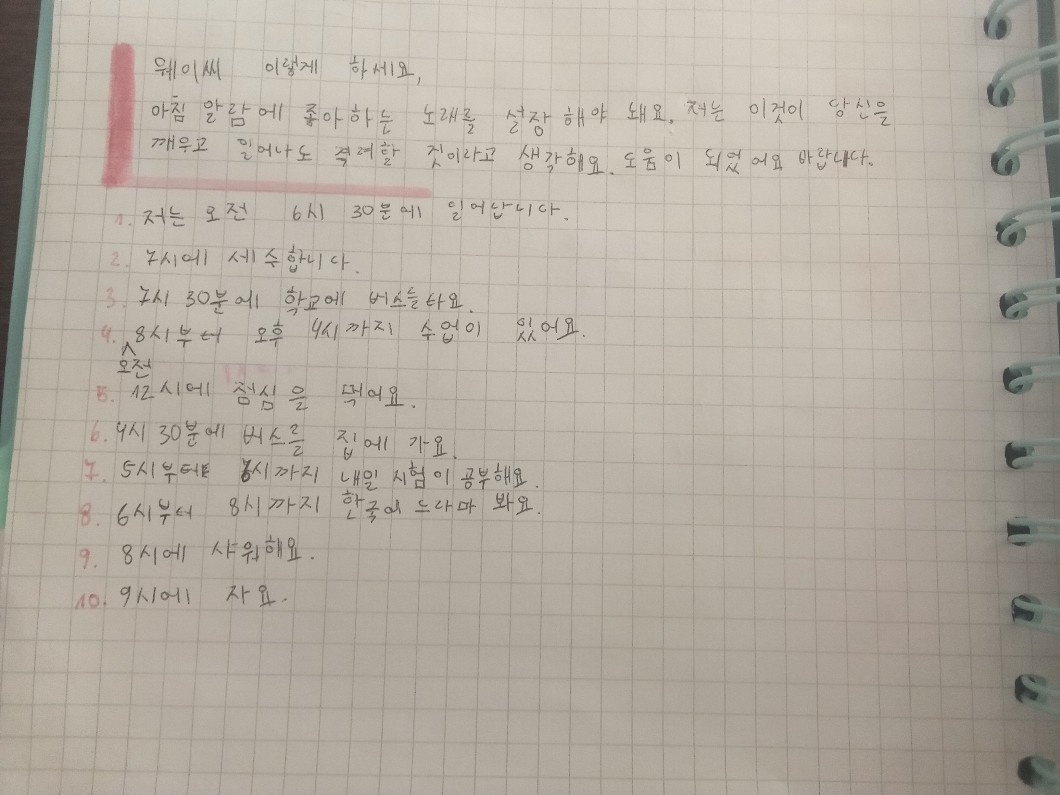 웨이씨 이렇게 하세요,
아침 알람에 좋아하는 노래를 설장 해야 돼요. 저는 이것이 당신을
깨우고 일어나도 격려할 것이라고 생각해요. 도움이 되었어요 바랍니다.
1. 저는 오전 6시 30분에 일어납니다.
2. 7시에 세수합니다.
3. 7시 30분에 학교에 버스를타요.
4. 8시부터 오후 4시까지 수업이 있어요.
오전
5. 12시에 점심을 먹어요.
6. 4시 30분에 버스를 집에 가요.
7. 5시부터 6시까지 내일 시험이 공부해요.
8. 6시부터 8시까지 한국어 드라마 봐요.
9. 8시에 샤워해요.
10. 9시에 자요.